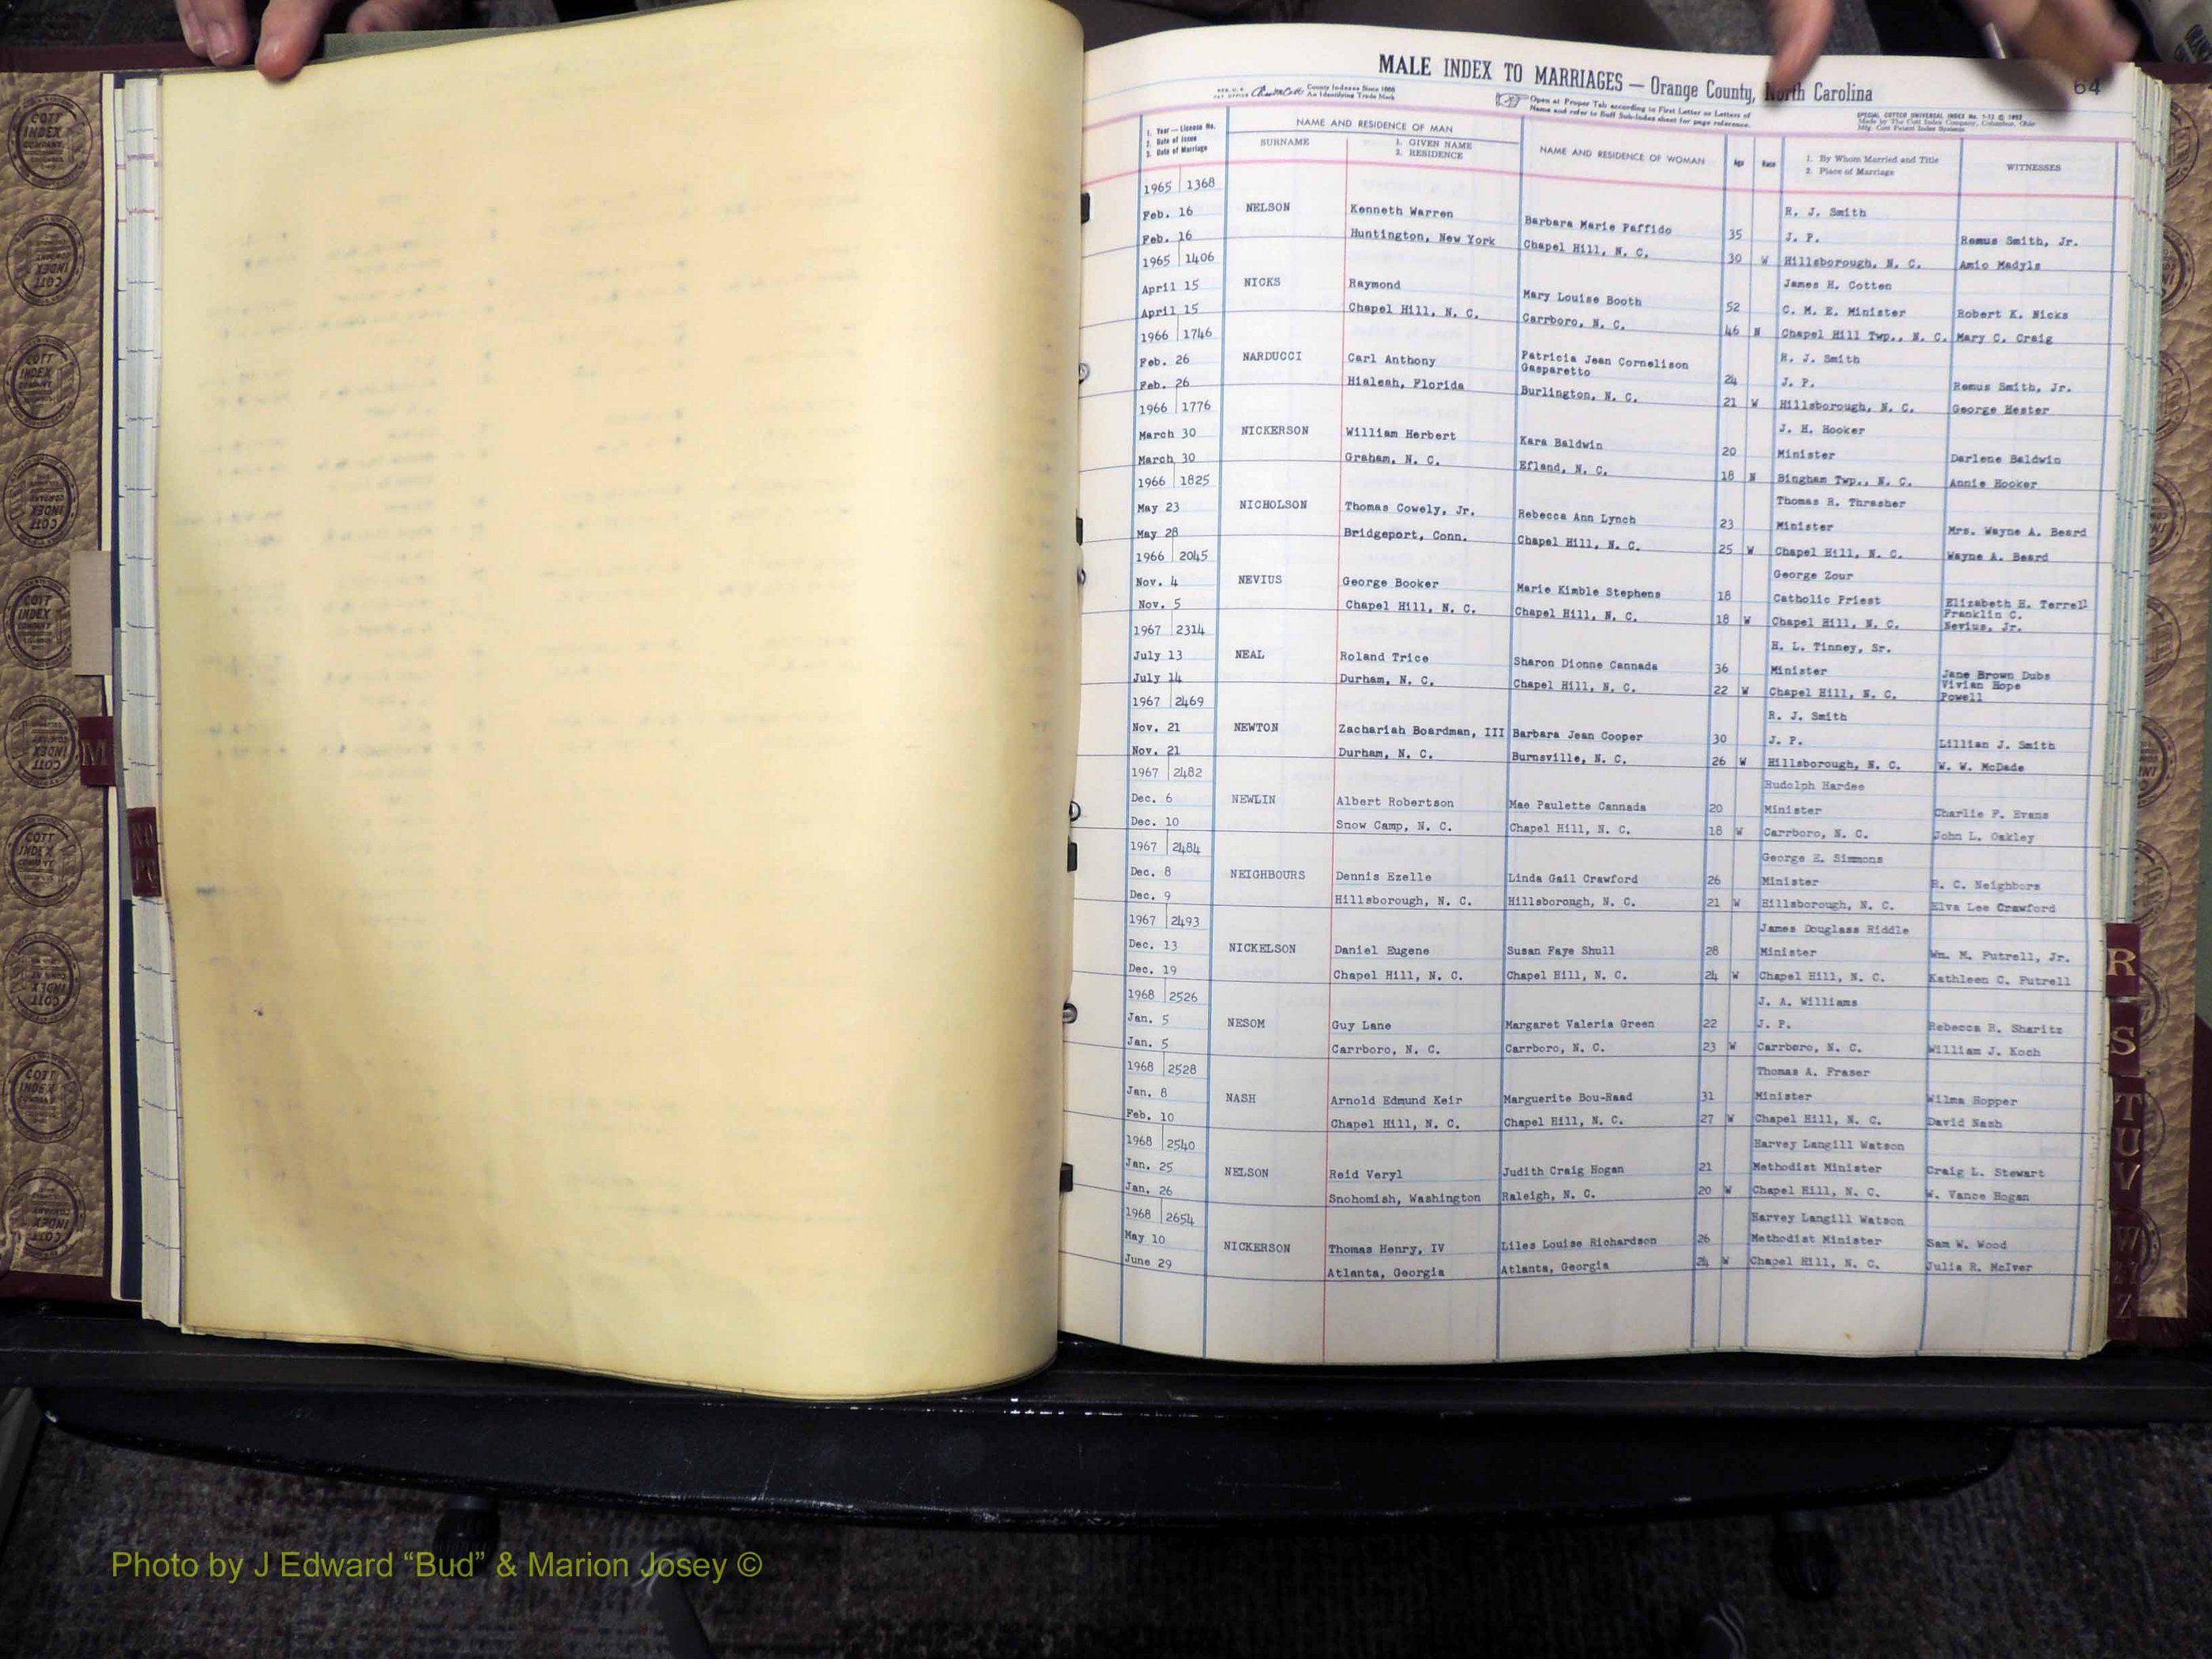 MALE INDEX TO MARRIAGES — Orange County, North Carolina
64
County Indexes Since 1888
An Identifying Trade Mark
Open at Proper Tab according to First Letter or Letters of
Name and refer to Buff Sub-Index sheet for page reference.
1. Year — License No.
2. Date of Issue
3. Date of Marriage
NAME AND RESIDENCE OF MAN
SURNAME
1. GIVEN NAME
2. RESIDENCE
NAME AND RESIDENCE OF WOMAN
Age
Race
1. By Whom Married and Title
2. Place of Marriage
WITNESSES
1965 1368
R. J. Smith
Feb. 16 NELSON Kenneth Warren Barbara Marie Paffido 35 J. P. Remus Smith, Jr.
Feb. 16 Huntington, New York Chapel Hill, N. C. 30 W Hillsborough, N. C. Amio Madyls
1965 1406
James H. Cotten
April 15 NICKS Raymond Mary Louise Booth 52 C. M. E. Minister Robert K. Nicks
April 15 Chapel Hill, N. C. Carrboro, N. C. 46 N Chapel Hill Twp., N. C. Mary C. Craig
1966 1746
R. J. Smith
Feb. 26 NARDUCCI Carl Anthony Patricia Jean Cornelison
Gasparetto 24 J. P. Remus Smith, Jr.
Feb. 26 Hialeah, Florida Burlington, N. C. 21 W Hillsborough, N. C. George Hester
1966 1776
J. H. Hooker
March 30 NICKERSON William Herbert Kara Baldwin 20 Minister Darlene Baldwin
March 30 Graham, N. C. Efland, N. C. 18 N Bingham Twp., N. C. Annie Hooker
1966 1825
Thomas R. Thrasher
May 23 NICHOLSON Thomas Cowely, Jr. Rebecca Ann Lynch 23 Minister Mrs. Wayne A. Beard
May 28 Bridgeport, Conn. Chapel Hill, N. C. 25 W Chapel Hill, N. C. Wayne A. Beard
1966 2045
George Zour
Nov. 4 NEVIUS George Booker Marie Kimble Stephens 18 Catholic Priest Elizabeth H. Terrell
Franklin C.
Nov. 5 Chapel Hill, N. C. Chapel Hill, N. C. 18 W Chapel Hill, N. C. Nevius, Jr.
1967 2314
H. L. Tinney, Sr.
July 13 NEAL Roland Trice Sharon Dionne Cannada 36 Minister Jane Brown Dubs
Vivian Hope
July 14 Durham, N. C. Chapel Hill, N. C. 22 W Chapel Hill, N. C. Powell
1967 2469
R. J. Smith
Nov. 21 NEWTON Zachariah Boardman, III Barbara Jean Cooper 30 J. P. Lillian J. Smith
Nov. 21 Durham, N. C. Burnsville, N. C. 26 W Hillsborough, N. C. W. W. McDade
1967 2482
Rudolph Hardee
Dec. 6 NEWLIN Albert Robertson Mae Paulette Cannada 20 Minister Charlie F. Evans
Dec. 10 Snow Camp, N. C. Chapel Hill, N. C. 18 W Carrboro, N. C. John L. Oakley
1967 2484
George E. Simmons
Dec. 8 NEIGHBOURS Dennis Ezelle Linda Gail Crawford 26 Minister R. C. Neighbors
Dec. 9 Hillsborough, N. C. Hillsborough, N. C. 21 W Hillsborough, N. C. Elva Lee Crawford
1967 2493
James Douglass Riddle
Dec. 13 NICKELSON Daniel Eugene Susan Faye Shull 28 Minister Wm. M. Futrell, Jr.
Dec. 19 Chapel Hill, N. C. Chapel Hill, N. C. 24 W Chapel Hill, N. C. Kathleen C. Futrell
1968 2526
J. A. Williams
Jan. 5 NESOM Guy Lane Margaret Valeria Green 22 J. P. Rebecca R. Sharitz
Jan. 5 Carrboro, N. C. Carrboro, N. C. 23 W Carrboro, N. C. William J. Koch
1968 2528
Thomas A. Fraser
Jan. 8 NASH Arnold Edmund Keir Marguerite Bou-Raad 31 Minister Wilma Hopper
Feb. 10 Chapel Hill, N. C. Chapel Hill, N. C. 27 W Chapel Hill, N. C. David Nash
1968 2540
Harvey Langill Watson
Jan. 25 NELSON Reid Veryl Judith Craig Hogan 21 Methodist Minister Craig L. Stewart
Jan. 26 Snohomish, Washington Raleigh, N. C. 20 W Chapel Hill, N. C. W. Vance Hogan
1968 2654
Harvey Langill Watson
May 10 NICKERSON Thomas Henry, IV Liles Louise Richardson 26 Methodist Minister Sam W. Wood
June 29 Atlanta, Georgia Atlanta, Georgia 24 W Chapel Hill, N. C. Julia R. McIver
M
R
S
T
U
V
Z
COTT
INDEX
COMPANY
Photo by J Edward “Bud” & Marion Josey ©